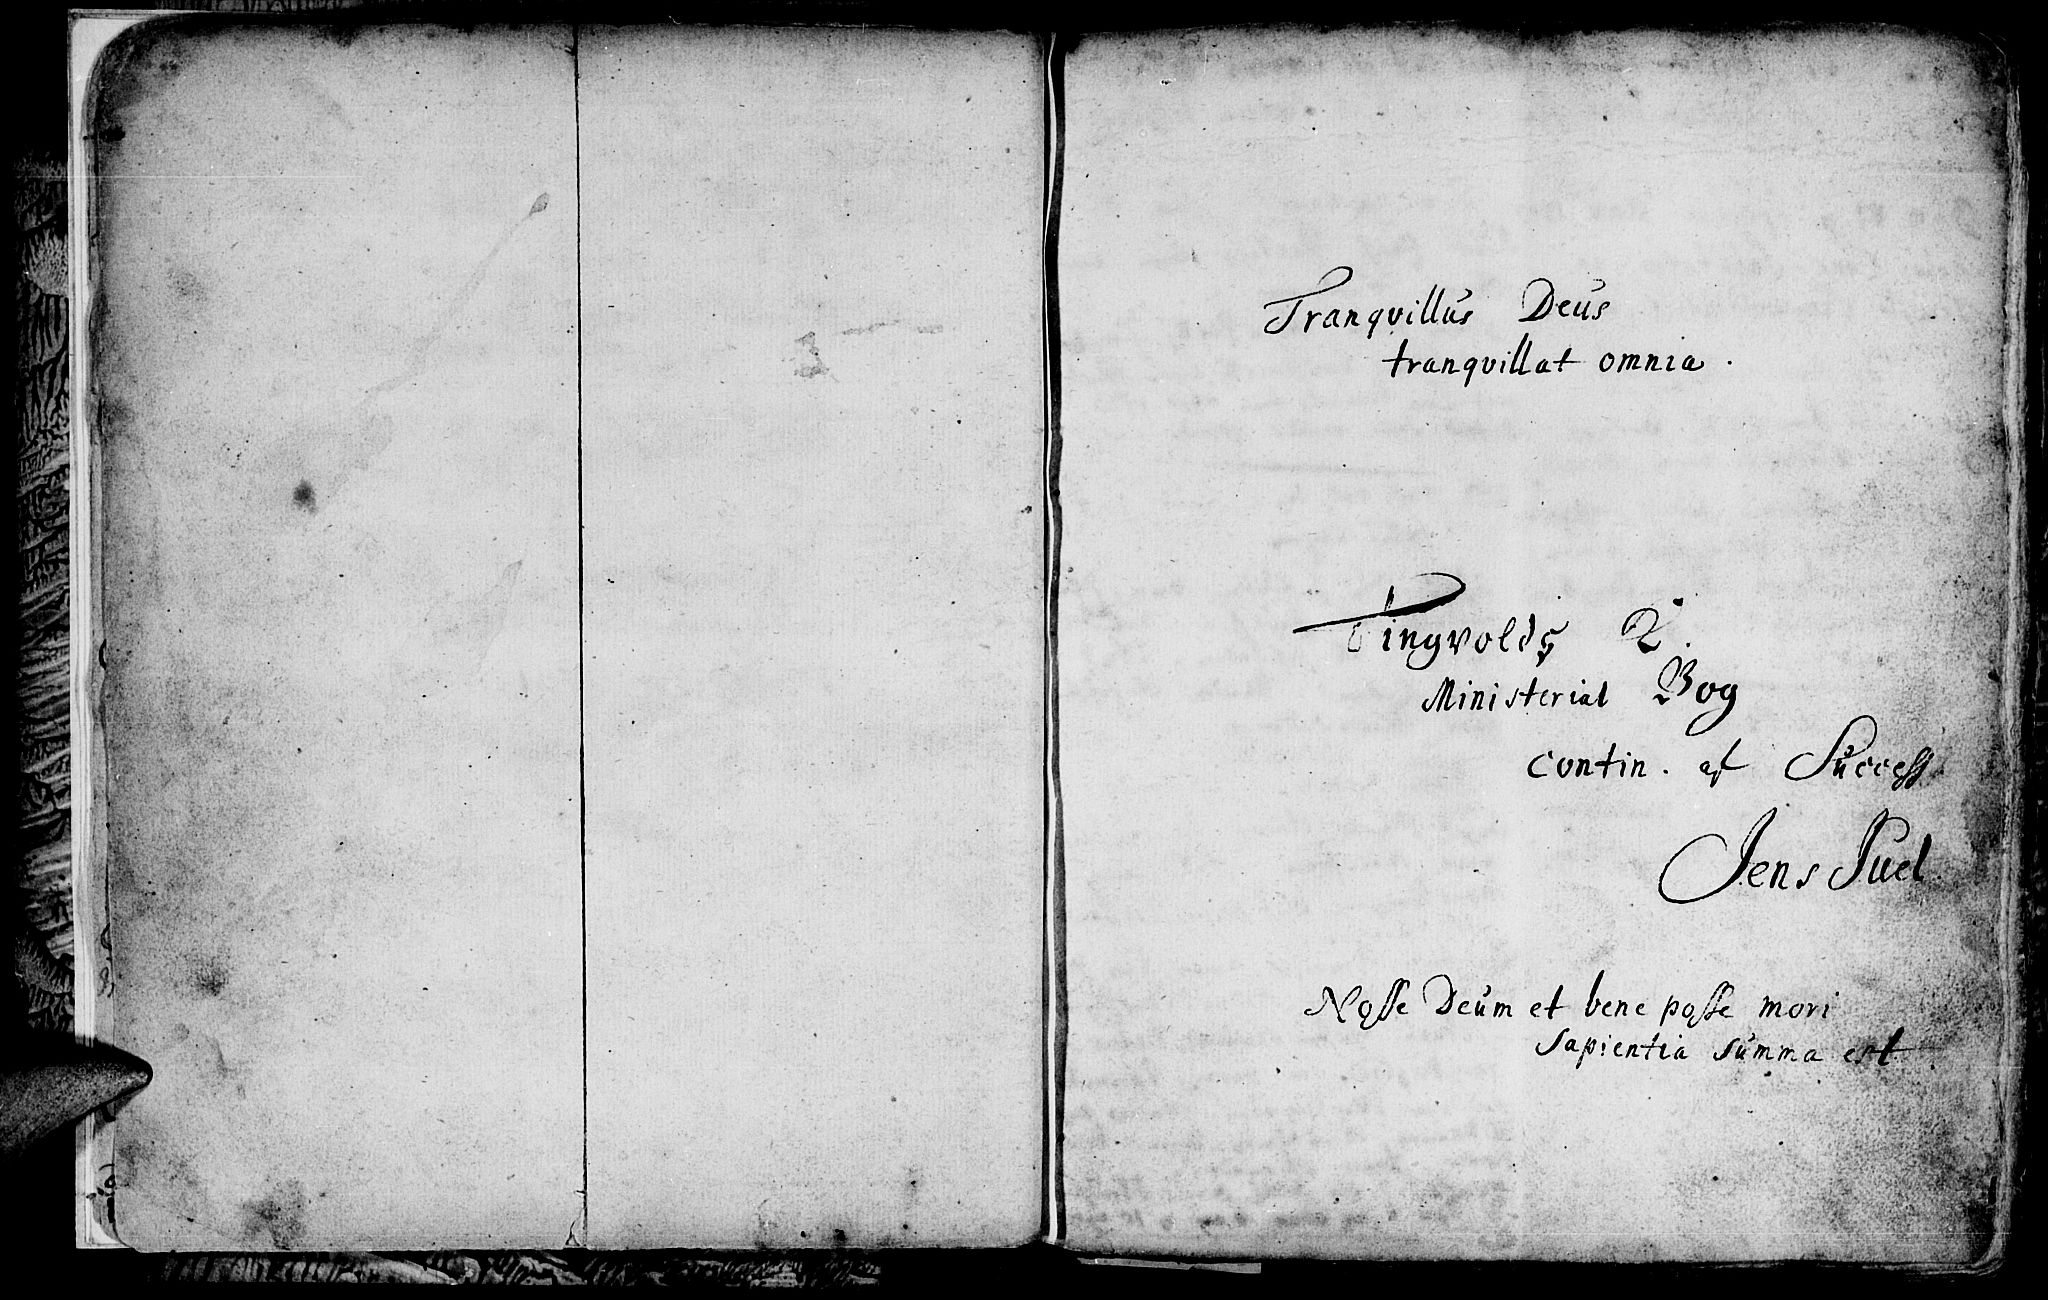 Tranqvillus Deus
tranqvillat omnia.
Tingvolds
Ministerial Bog
contin. af Success
Jens Juel
Nosse Deum et bene posse mori
sapientia summa est